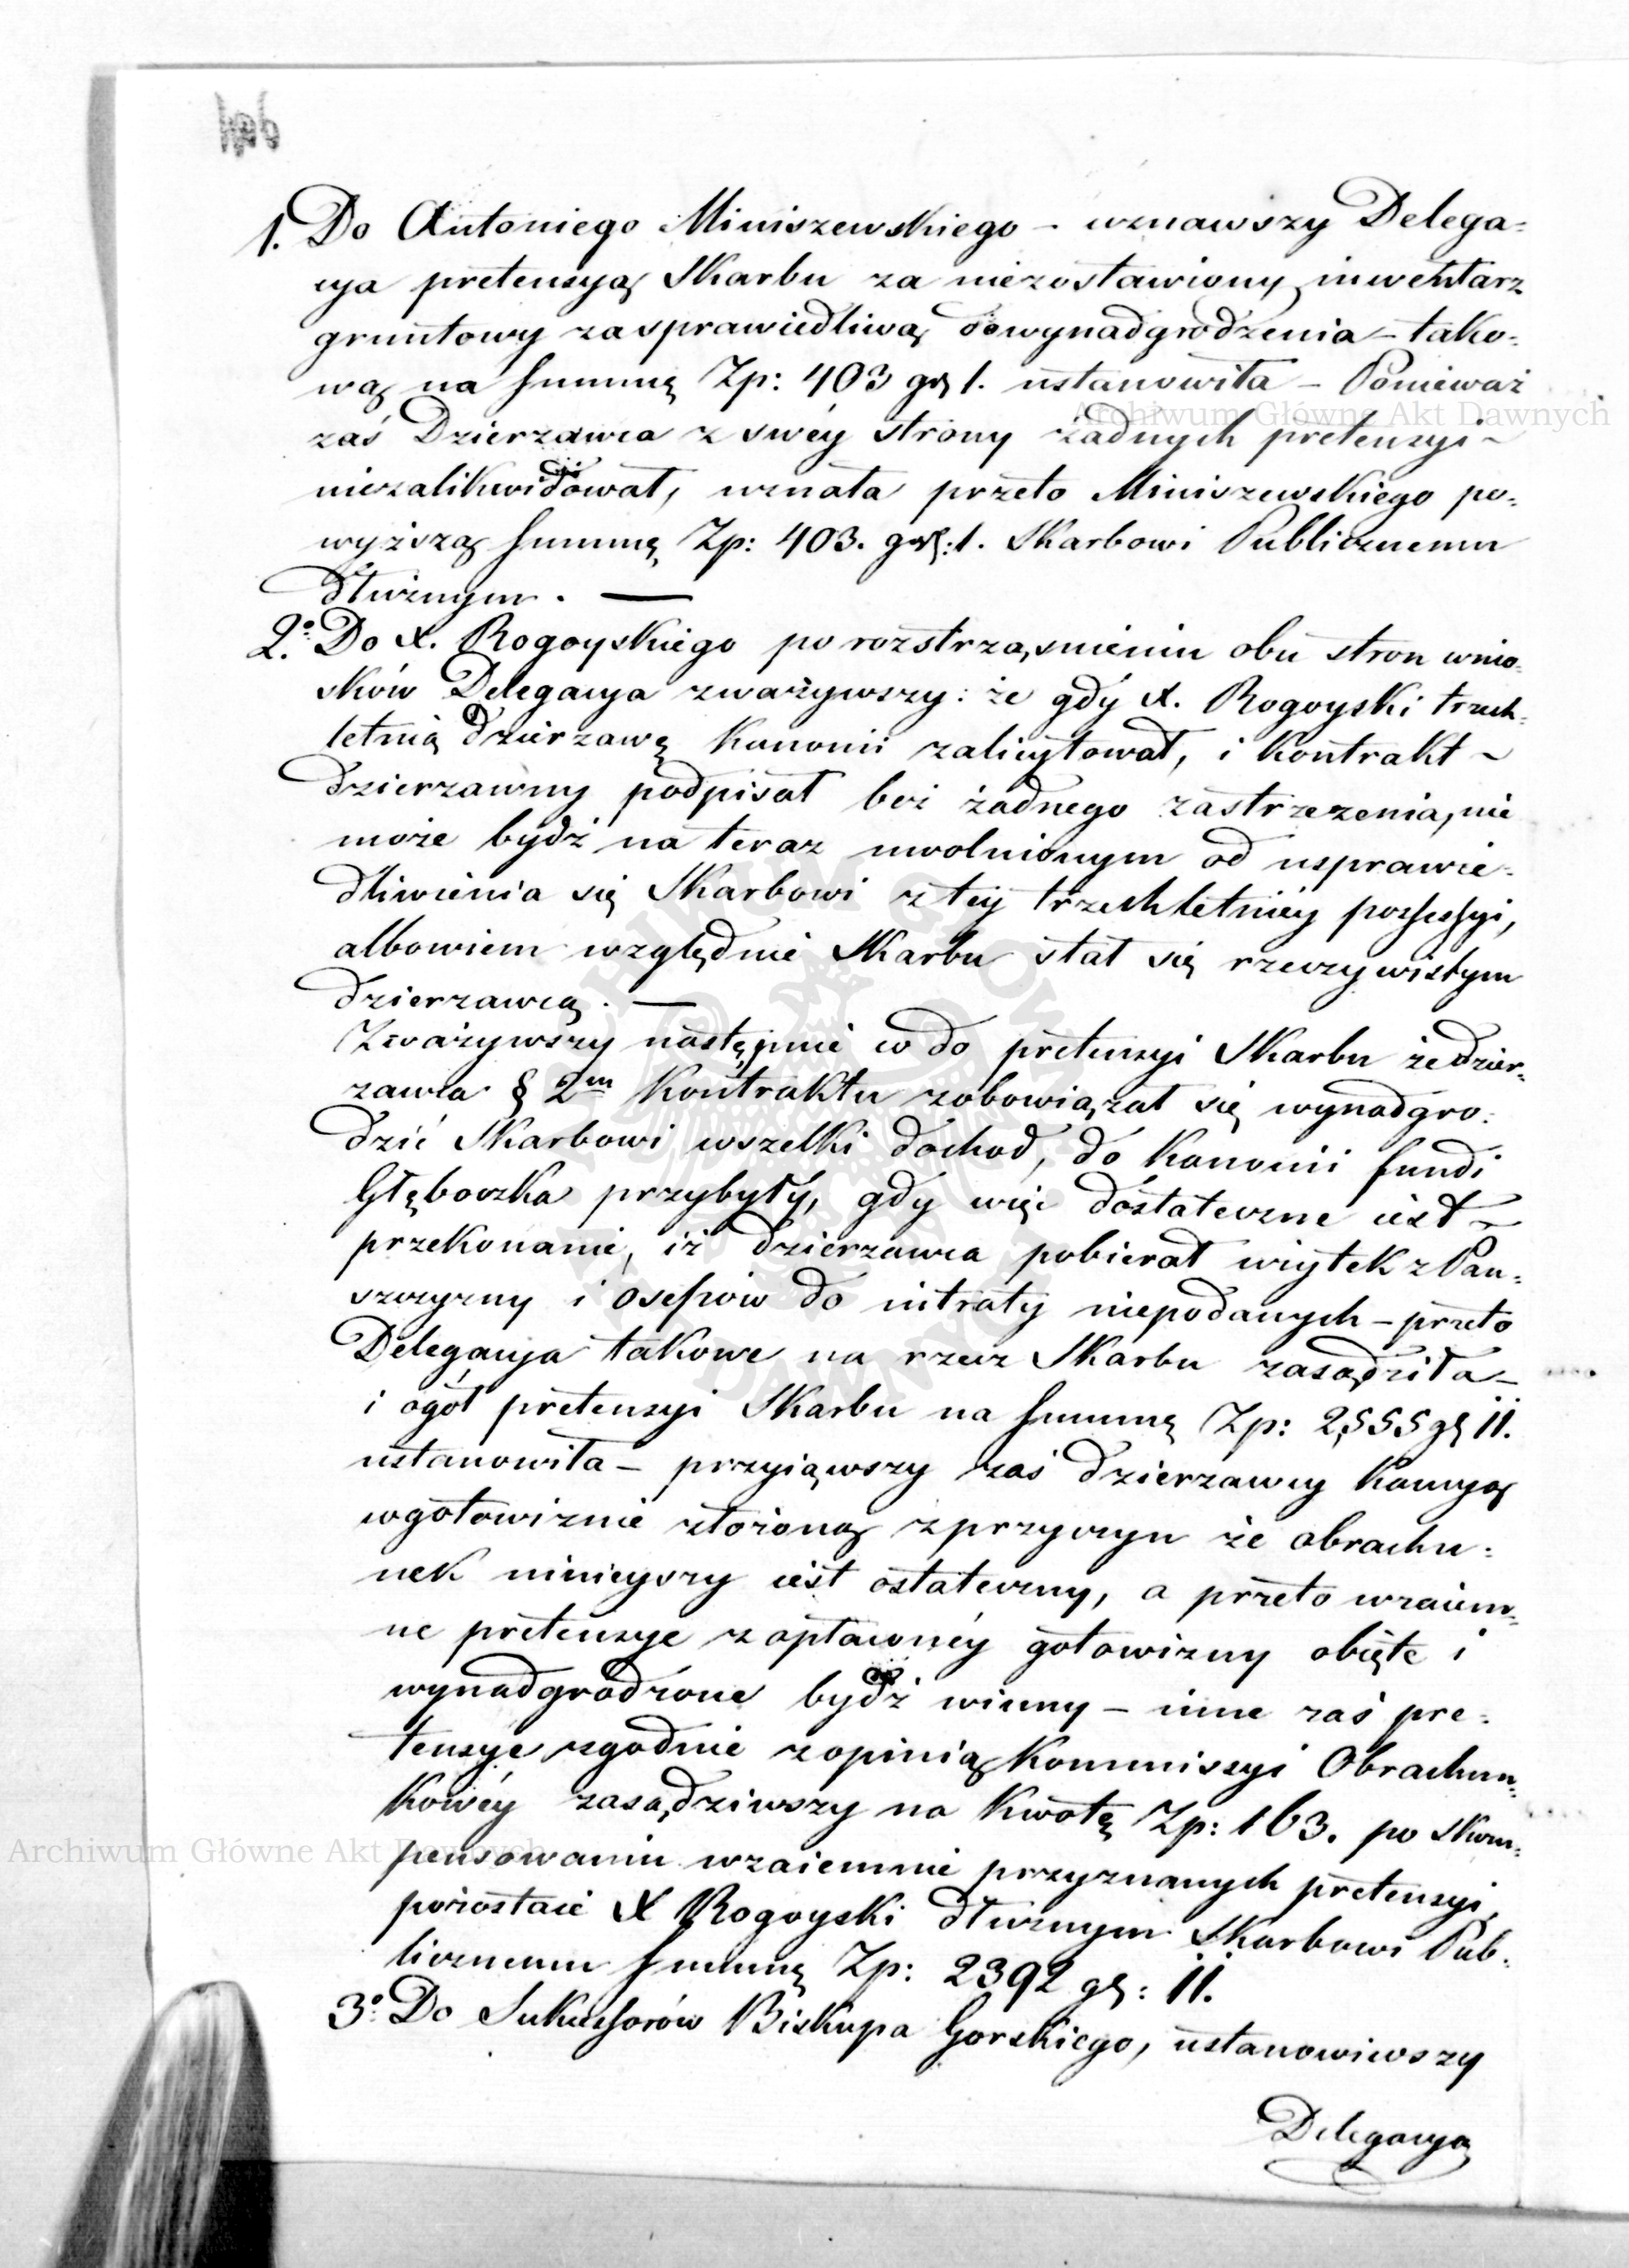 1. Do Antoniego Miniszewskiego – uznawszy Delega=
cya pretensyą Skarbu za niezostawiony inwentarz
gruntowy za sprawiedliwą do wynadgrodzenia – tako=
wą na summę Zp: 403 gr 1. ustanowiła – Ponieważ
Archiwum Główne Akt Dawnych
zaś Dzierzawca z swéy strony żadnych pretensyi –
niezalikwidował, uznała przeto Miniszewskiego po=
wyższą summę Zp: 403. gr: 1. Skarbowi Publicznemu
dłużnym. —
2.° Do X. Rogoyskiego po rozstrząśnieniu obu stron wnio=
sków Delegacya zważywszy: że gdy X. Rogoyski trzech=
letnią dzierzawę Kanonii zalicytował, i Kontrakt –
dzierzawny podpisał bez żadnego zastrzezenia, nie
może bydź na teraz uwolnionym od usprawie=
dliwienia się Skarbowi z tey trzechletniéy possessyi,
albowiem względnie Skarbu stał się rzeczywistym
dzierzawcą. —
Zważywszy następnie co do pretensyi Skarbu że dzier=
zawca § 2m Kontraktu zobowiązał się wynadgro=
dzić Skarbowi wszelki dochod, do Kanonii fundi
Głęboczka przybyły, gdy więc dostateczne iest –
przekonanie, iż dzierzawca pobierał użytek z Pan=
szczyzny i osepów do intraty niepodanych – przeto
Delegacya takowe na rzecz Skarbu zasądziła –
i ogół pretensyi Skarbu na summę Zp: 2,555 gr 11.
ustanowiła – przyiąwszy zaś dzierzawcy Kaucyą
w gotowiznie złożoną z przyczyn że obrachu=
nek ninieyszy iest ostateczny, a przeto wzaiem=
ne pretensye z opłaconéy gotowizny obięte i
wynadgrodzone bydź winny – inne zaś pre=
tensye zgodnie z opinią Kommissyi Obrachun=
kowéy zasądziwszy na Kwotę Zp: 163. po skom=
Archiwum Główne Akt Dawnych
pensowaniu wzaiemnie przyznanych pretensyi,
pozostaie X Rogoyski dłużnym Skarbowi Pub=
licznemu summę Zp: 2392 gr: 11.
3.° Do Sukcessorów Biskupa Gorskiego, ustanowiwszy
Delegacya